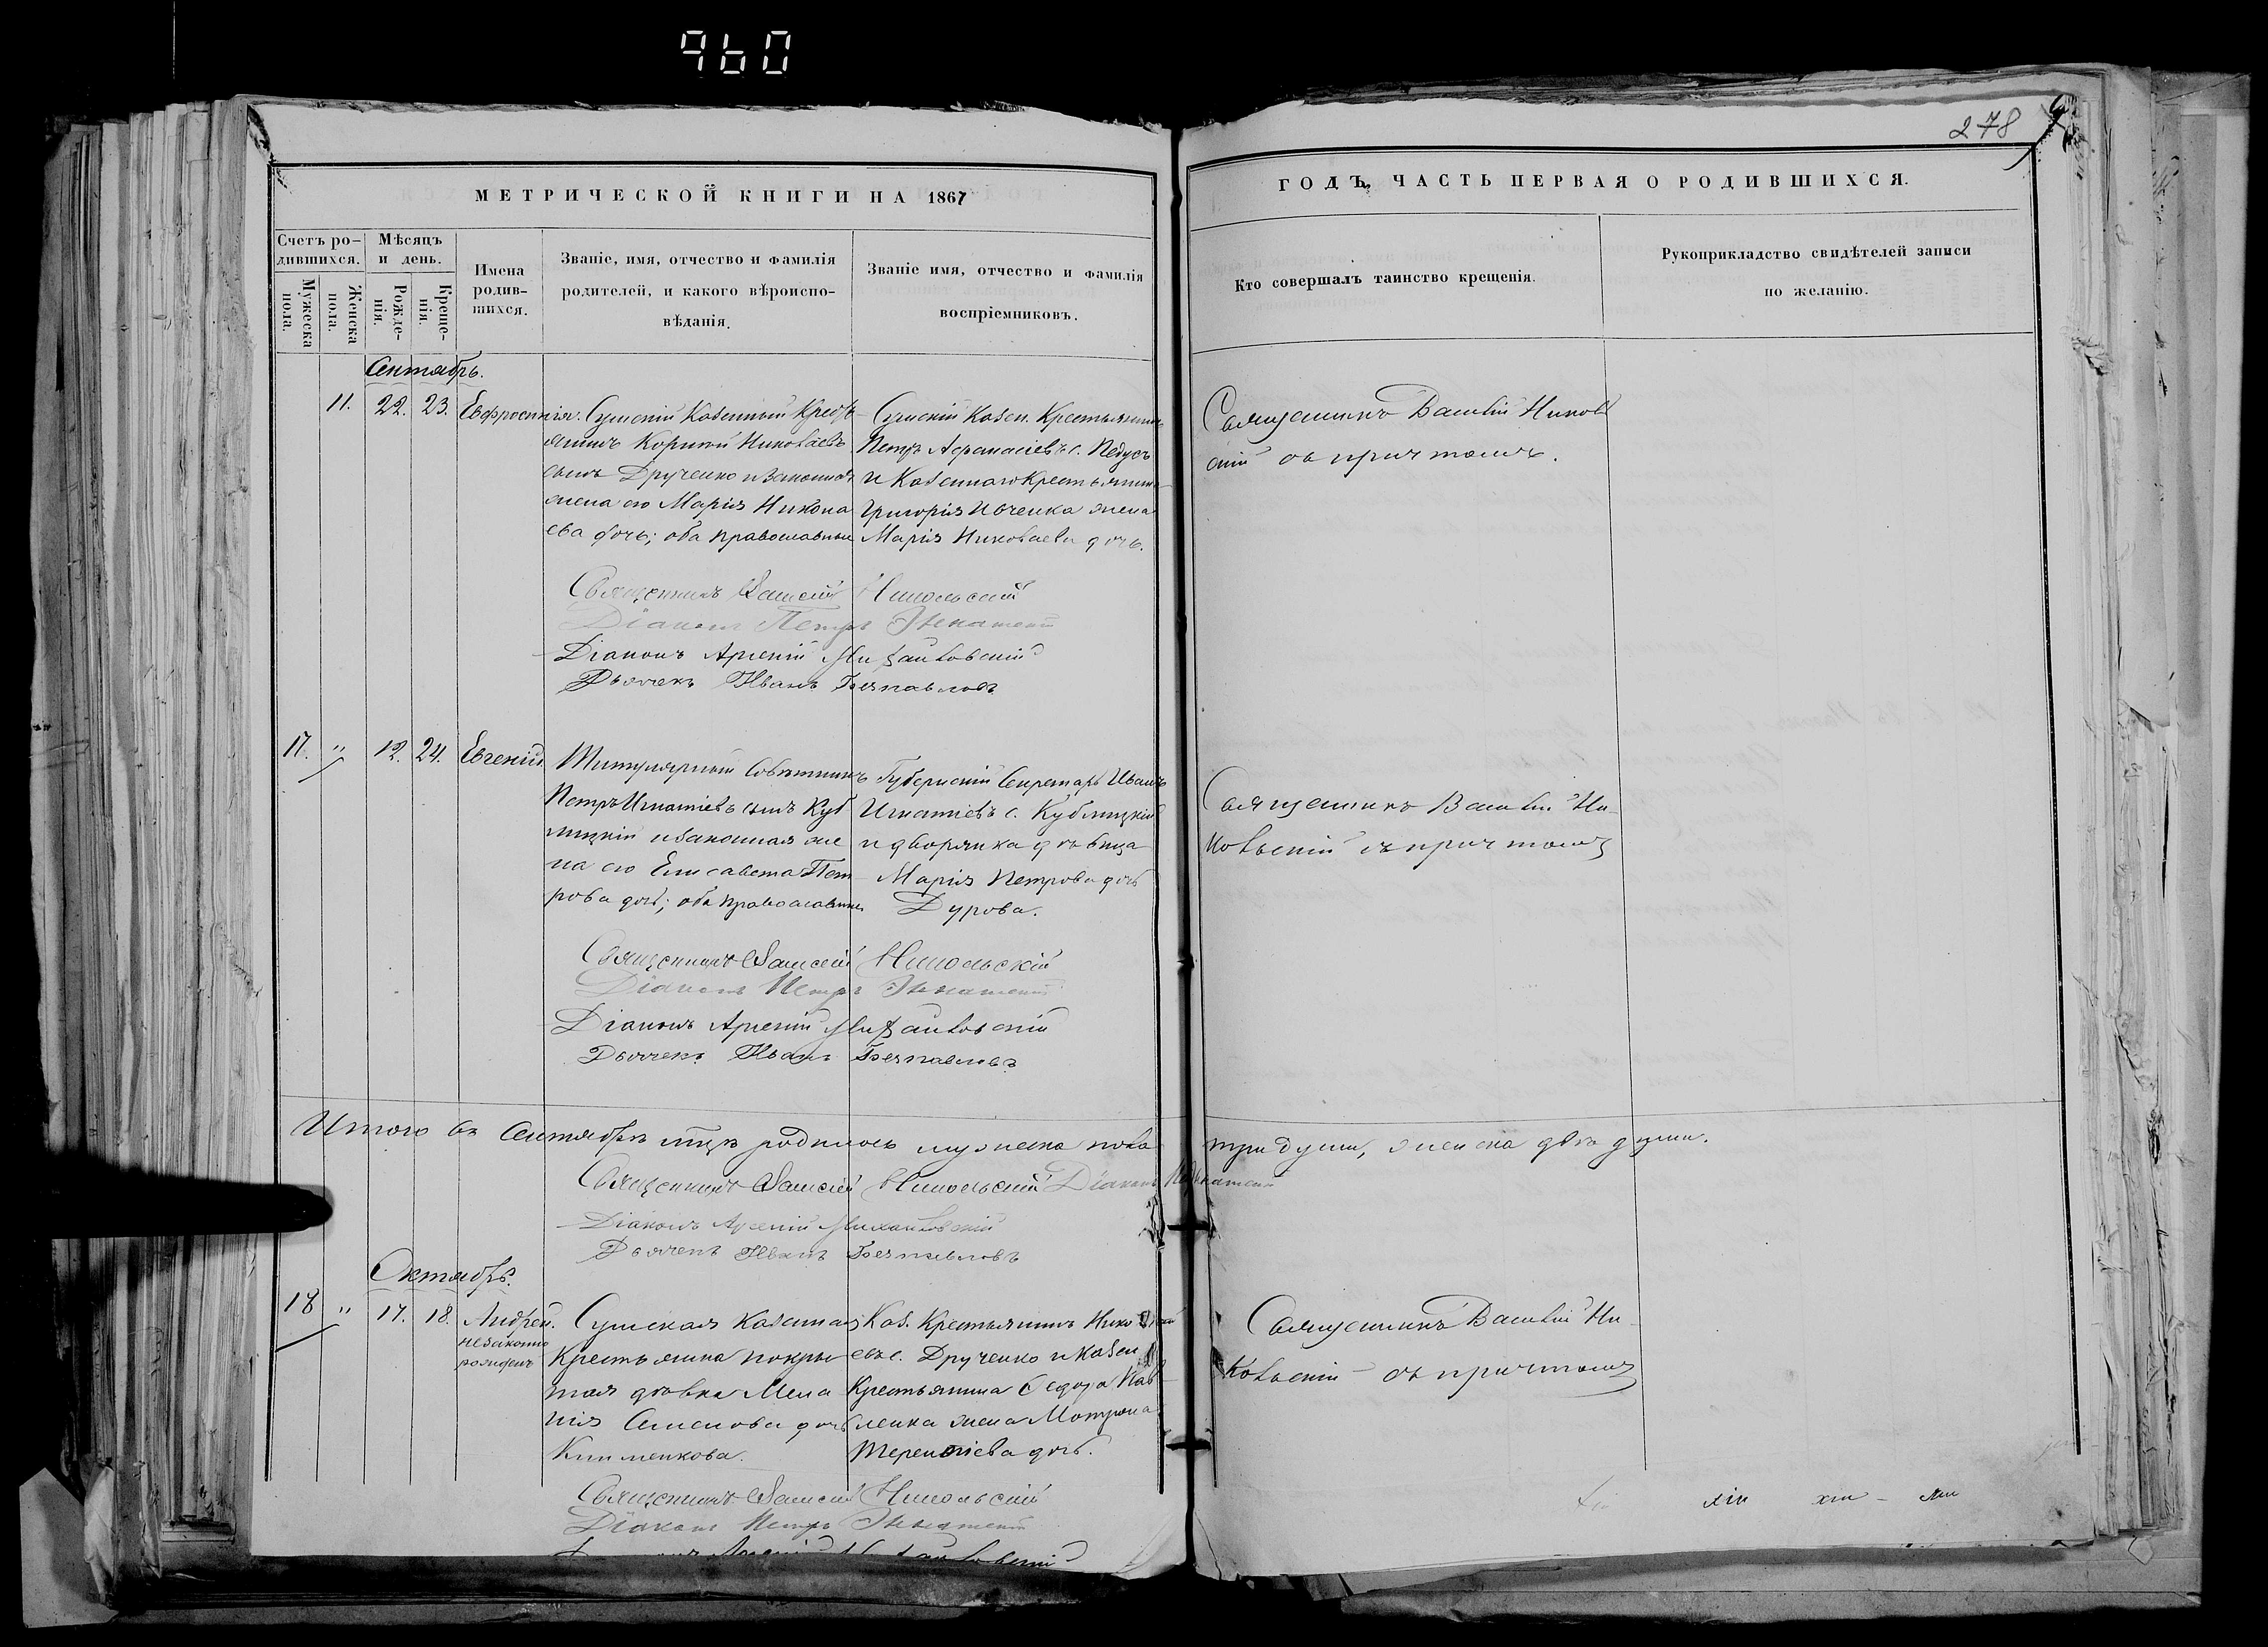 960
278
МЕТРИЧЕСКОЙ КНИГИ НА 1867
ГОДЪ, ЧАСТЬ ПЕРВАЯ О РОДИВШИХСЯ.
Счетъ ро-
дившихся.
Мужеска
пола.
Женска
пола.
Мѣсяцъ
и день.
Рожде-
нія.
Креще-
нія.
Имена
родив-
шихся.
Званіе, имя, отчество и фамилія
родителей, и какого вѣроиспо-
вѣданія.
Званіе имя, отчество и фамилія
воспріемниковъ.
Кто совершалъ таинство крещенія.
Рукоприкладство свидѣтелей записи
по желанію.
Сентябрь.
11. 22. 23. Евфросинія.
Сумскій Казенный Кресть
янинъ Корнилій Николаевъ
сынъ Друченко и законная
жена его Марія Никола
ева дочь; оба православные
Сумскій Казен. Крестьянинъ
Петръ Афанасіевъ с. Педусъ
и Казеннаго Крестьянина
Григорія Ивченка жена
Марія Николаева дочь.
Священникъ Василій Николь
скій съ причтомъ.
Священникъ Василій Никольскій
Діаконъ Петръ
Діаконъ Арсеній Михайловскій
Дьячекъ Иванъ Безпаловъ
17. " 12. 24. Евгеній
Титулярный Совѣтникъ
Петръ Игнатіевъ сынъ Куб
лицкій и законная же
на его Елисавета Пет
рова дочь; оба православные
Губернскій Секретарь Иванъ
Игнатіевъ с. Кублицкій
и дворянка дѣвица
Марія Петрова дочь
Дурова.
Священникъ Василій Ни-
кольскій съ причтомъ
Священникъ Василій Никольскій
Діаконъ Петръ
Діаконъ Арсеній Михайловскій
Дьячекъ Иванъ Безпаловъ
Итого въ Сентябрѣ мцѣ родилось мужеска пола три души, женска двѣ души.
Священникъ Василій Никольскій Діаконъ
Діаконъ Арсеній Михайловскій
Дьячекъ Иванъ Безпаловъ
Октябрь.
18 " 17. 18. Андрей.
незаконно
рожденъ
Сумская Казенная
Крестьянка покры
тая дѣвка Мела
нія Семенова дочь
Клименкова.
Каз. Крестьянинъ Николай
евъ с. Друченко и Казен
Крестьянина Ѳедора Пав
ленка жена Мотрона
Терентіева дочь.
Священникъ Василій Ни-
кольскій съ причтомъ
Священникъ Василій Никольскій
Діаконъ Петръ